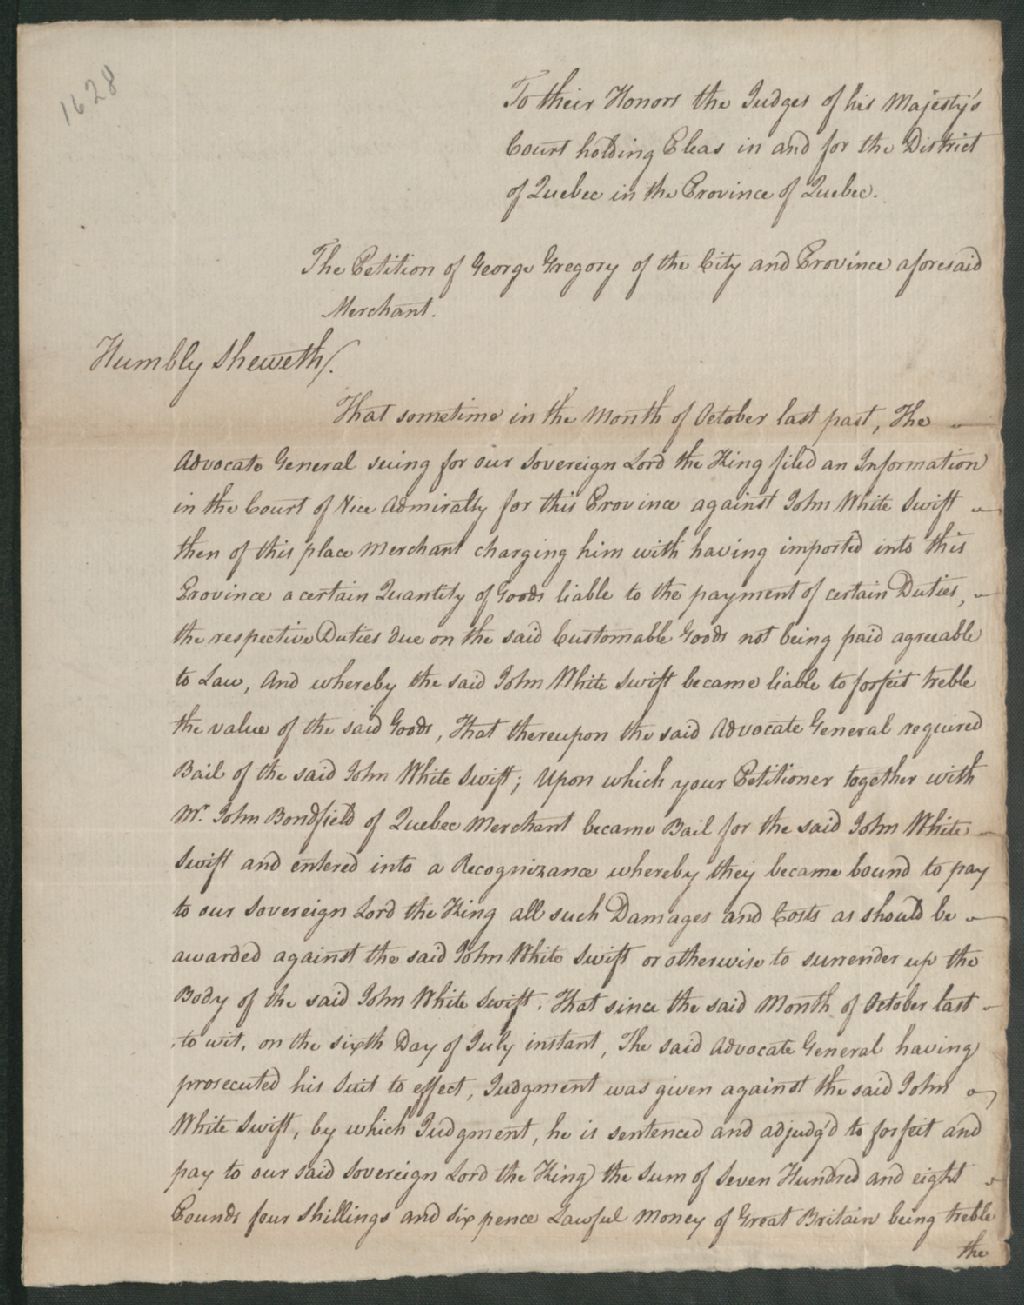 1628
To their Honors the Judges of his Majesty's
Court holding Pleas in and for the District
of Quebec in the Province of Quebec.
The Petition of George Gregory of the City and Province aforesaid
Merchant.
Humbly Sheweth/.
That sometime in the Month of October last past, The
Advocate General suing for our Sovereign Lord the King filed an Information
in the Court of Vice Admiralty for this Province against John White Swift
then of this place Merchant charging him with having imported into this
Province a certain Quantity of Goods liable to the payment of certain Duties,
the respective Duties due on the said Customable Goods not being paid agreeable
to Law, And whereby the said John White Swift became liable to forfeit treble
the value of the said Goods, That thereupon the said Advocate General required
Bail of the said John White Swift; Upon which your Petitioner together with
Mr. John Bondfield of Quebec Merchant became Bail for the said John White
Swift and entered into a Recognizance whereby they became bound to pay
to our Sovereign Lord the King all such Damages and Costs as should be
awarded against the said John White Swift or otherwise to surrender up the
Body of the said John White Swift. That since the said Month of October last
to wit, on the sixth Day of July instant, The said Advocate General having
prosecuted his Suit to effect, Judgment was given against the said John
White Swift, by which Judgment, he is sentenced and adjudg'd to forfeit and
pay to our said Sovereign Lord the King the Sum of Seven Hundred and eight
Pounds four Shillings and six pence Lawful Money of Great Britain being treble
the